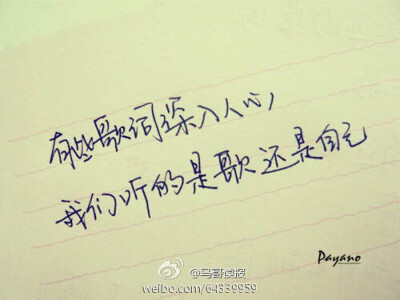 有些歌词深入人心，
我们听的是歌还是自己
Payano
@马哥侠报
weibo.com/64339959